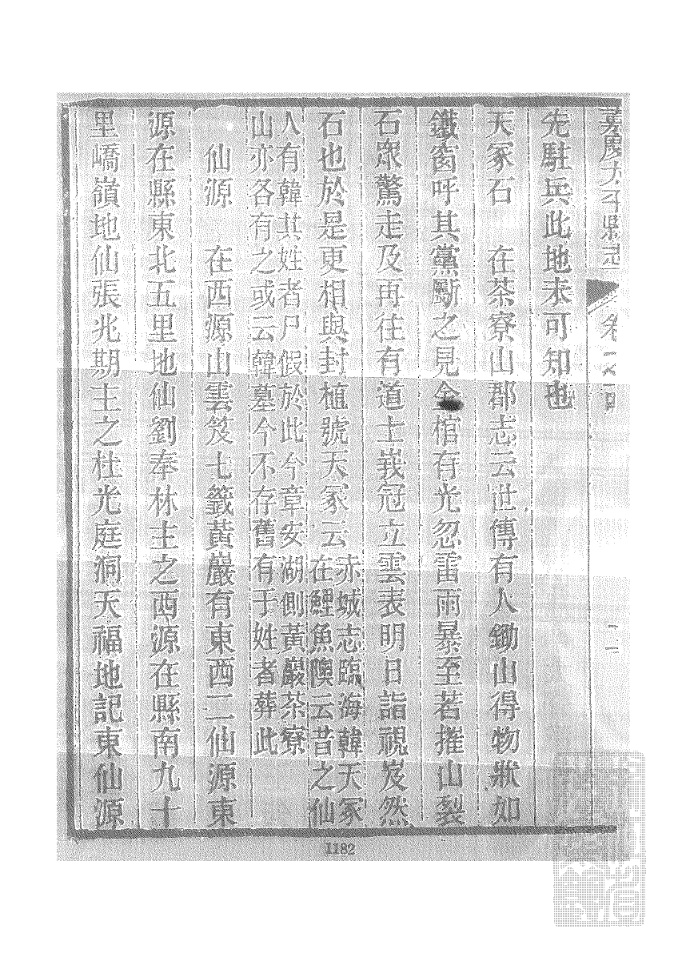 嘉慶太平縣志
卷
二
先駐兵此地未可知也
天冢石　在茶寮山郡志云世傳有人鋤山得物狀如
鐵窗呼其黨斸之見金棺有光忽雷雨暴至若摧山裂
石眾驚走及再往有道士峩冠立雲表明日詣視岌然
石也於是更相與封植號天冢云赤城志臨海韓天冢
在鯉魚隩云昔之仙
人有韓其姓者尸假於此今章安湖側黃巖茶寮
山亦各有之或云韓墓今不存舊有于姓者葬此
仙源　在西源山雲笈七籤黃巖有東西二仙源東
源在縣東北五里地仙劉奉林主之西源在縣南九十
里嶠嶺地仙張兆期主之杜光庭洞天福地記東仙源
1182